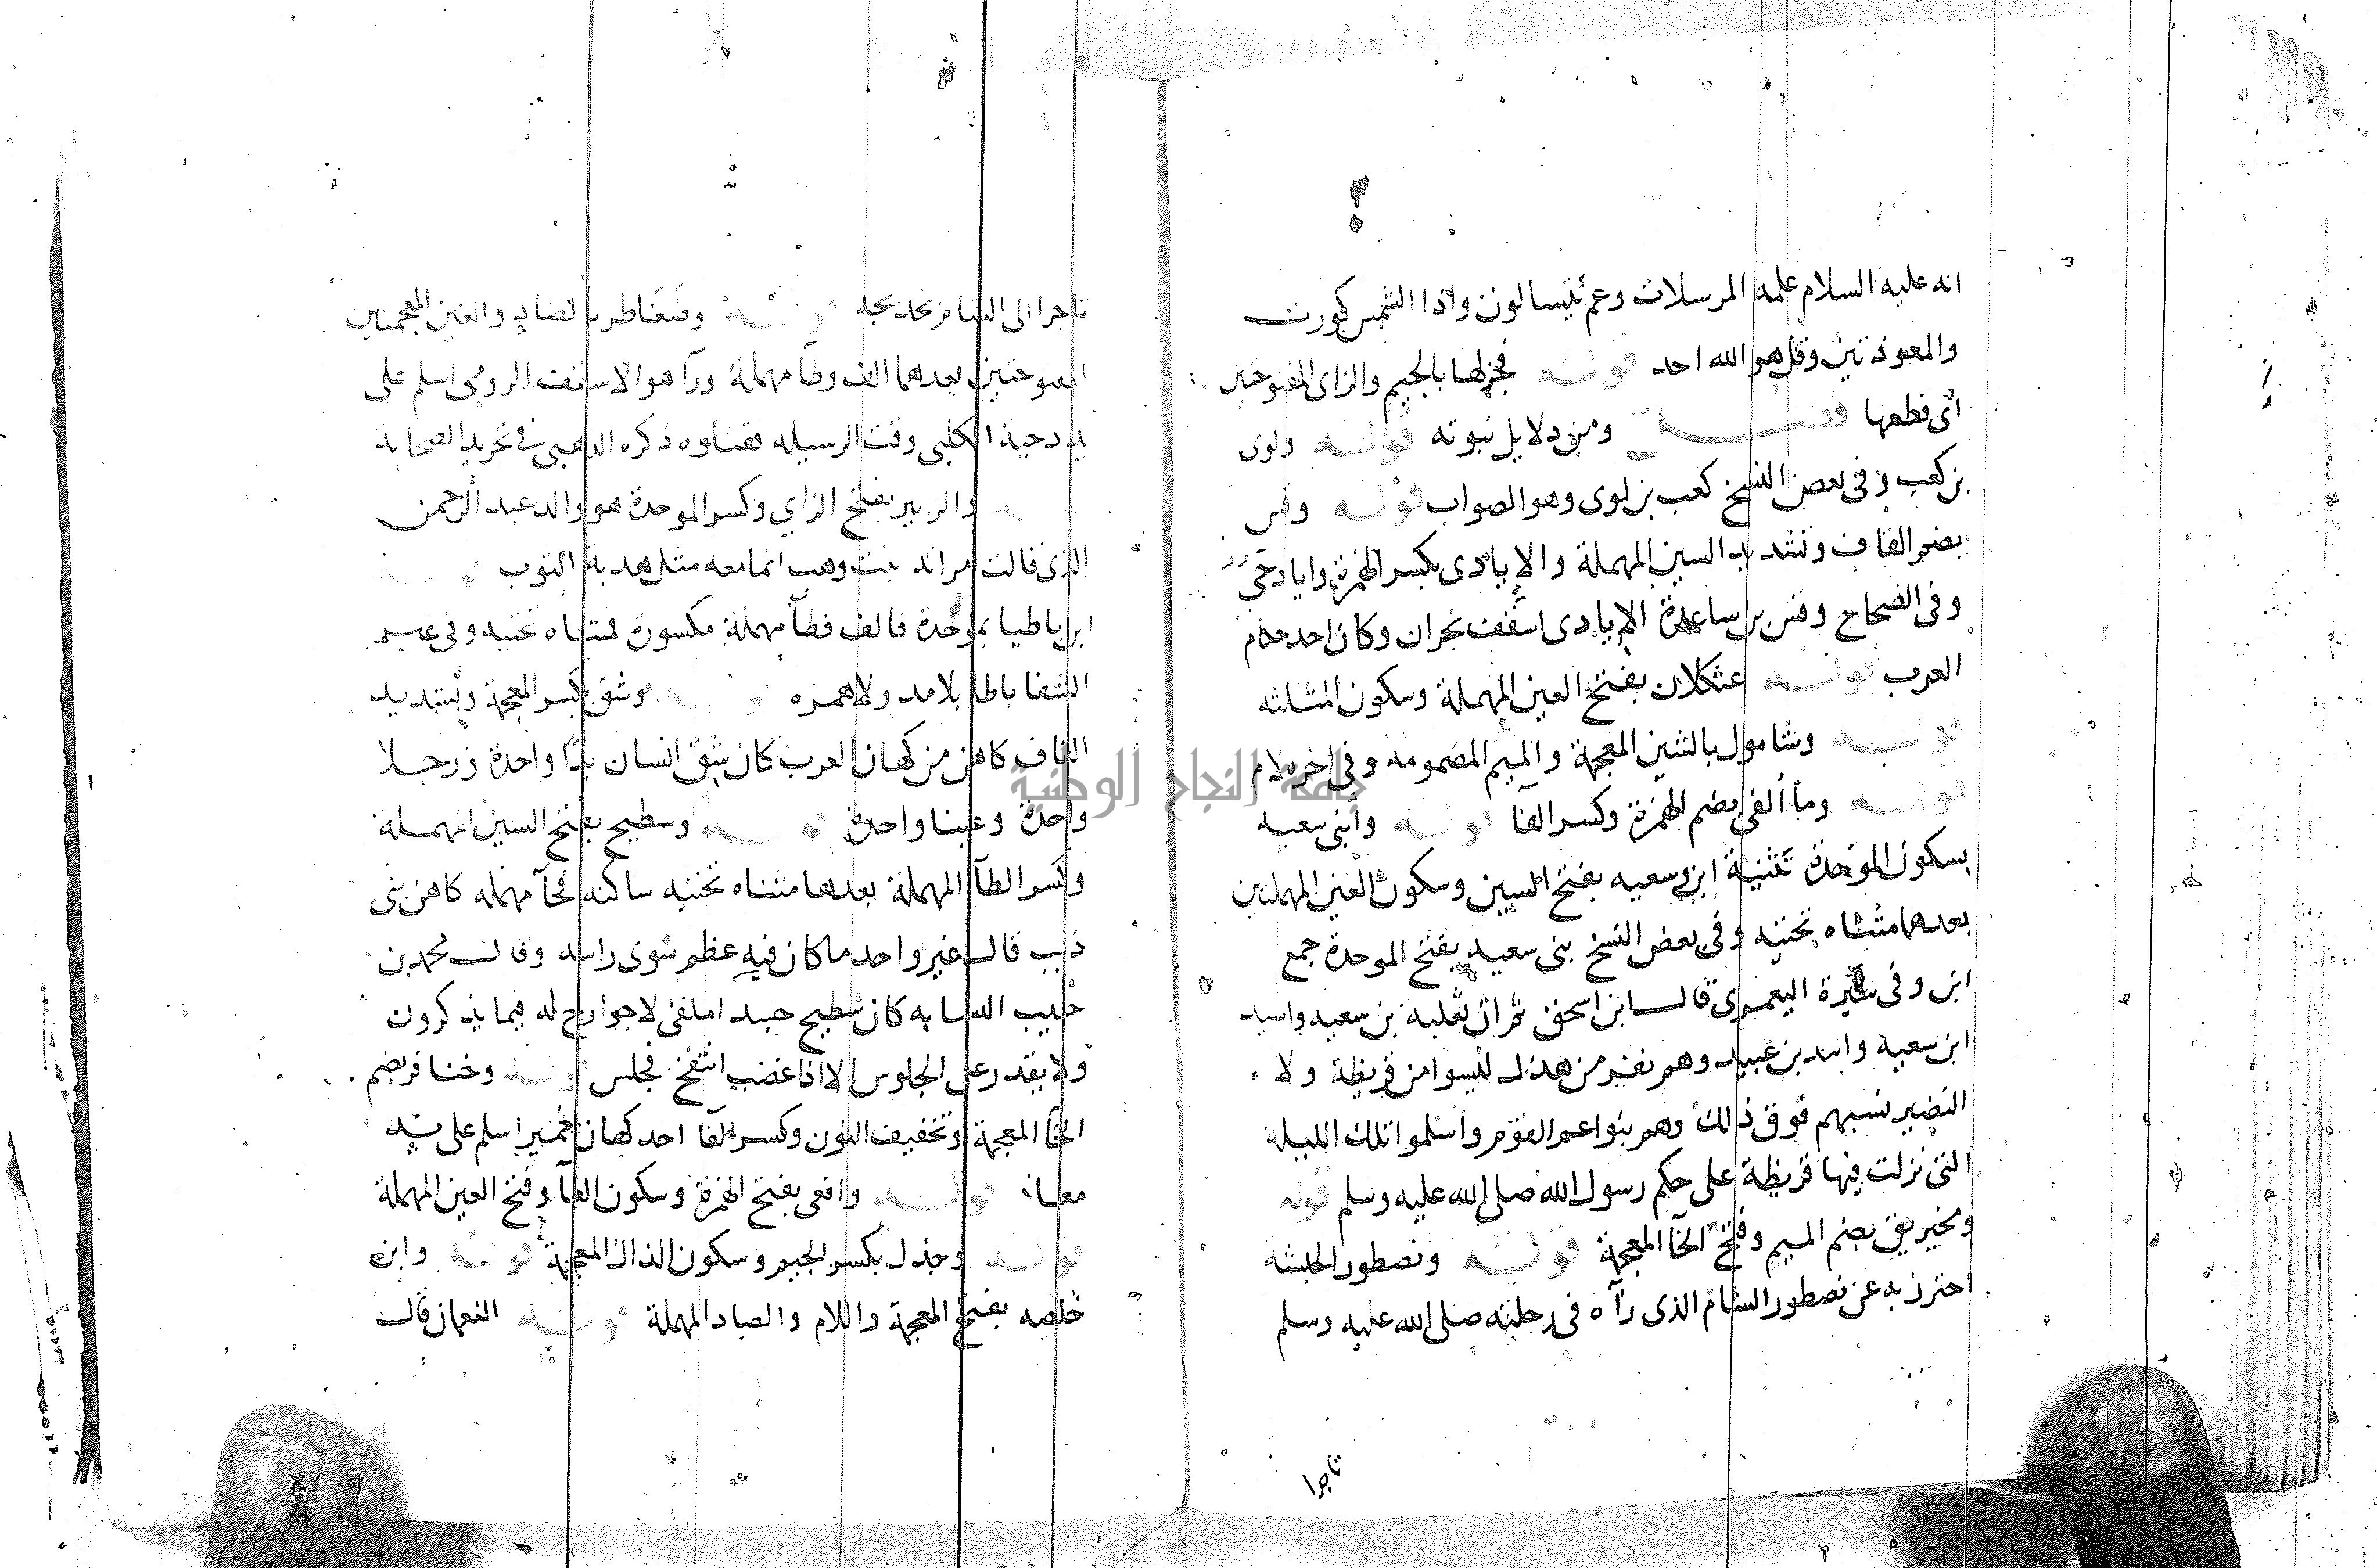 انه عليه السلام علمه المرسلات وعم يتسالون واذا الشمس كورت
والمعوذتين وقل هو الله احد قوله فجزلها بالجيم والزاى المفتوحتين
اى قطعها فصل ومن دلايل نبوته قوله ولوى
بن كعب وفى بعض النسخ كعب بن لوى وهو الصواب قوله وقس
بضم القاف وتشديد السين المهملة والإيادى بكسر الهمزة وايادحى
وفى الصحاح وقس بن ساعدة الإيادى اسقف نجران وكان احد حكام
العرب قوله عثكلان بفتح العين المهملة وسكون المثلثه
قوله وشامول بالشين المعجمة والميم المضمومه وفى اخره لام
قوله وما ألفى بضم الهمزة وكسر الفا قوله وأبنى سعيه
بسكون الموحدة تثنية ابن وسعيه بفتح السين وسكون العين المهملتين
بعدهما مثناه تحتيه وفى بعض النسخ بنى سعيه بفتح الموحدة جمع
ابن وفى سيرة اليعمرى قال ابن اسحق ثم ان ثعلبة بن سعيه واسيد
ابن سعيه واسد بن عبيد وهم نفر من هذل ليسوا من قريظة ولا
النضير نسبهم فوق ذلك وهم بنوا عم القوم واسلموا تلك الليلة
التى نزلت فيها قريظة على حكم رسول الله صلى الله عليه وسلم قوله
ومخيريق بضم الميم وفتح الخآ المعجمة قوله ونصطور الحبشة
احترز به عن نصطور الشام الذى رآه فى رحلته صلى الله عليه وسلم
تاجرا
تاجرا الى الشام قوله وضغاطر بالضاد والغين المعجمتين
المفتوحتين بعدهما الف وطآ مهملة ورآ هو الاسقف الرومى اسلم على
يد دحية الكلبى وقت الرسيله فقتلوه ذكره الذهبى فى تجريد الصحابه
والزبير بفتح الزاي وكسر الموحدة هو والد عبد الرحمن
الذى قالت امراته بنت وهب انما معه مثل هدبة الثوب قوله
ابن باطيا بموحدة فالف فطآ مهملة مكسورة فمثناه تحتيه وفى
الشفا باطا بلا مد ولا همزه قوله وشق بكسر المعجمة وتشديد
القاف كاهن من كهان العرب كان شق انسان يدًا واحدة ورجلا
واحدة وعينا واحدة قوله وسطيح بفتح السين المهملة
وكسر الطآ المهملة بعدها مثناه تحتيه ساكنه فحآ مهمله كاهن بنى
ذيب قال غير واحد ما كان فيه عظم سوى راسه وقال محمد بن
حبيب النسابه كان سطيح جسدا ملقى لا جوارح له فيما يذكرون
ولا يقدر على الجلوس الا اذا غضب انتفخ فجلس قوله وخنافر بضم
الخآ المعجمة وتخفيف النون وكسر الفآ احد كهان حمير اسلم على يد
معاذ قوله وافعى بفتح الهمزة وسكون الفآ وفتح العين المهملة
قوله وجذل بكسر الجيم وسكون الذال المعجمة قوله وابن
خلصه بفتح المعجمة واللام والصاد المهملة قوله النعمان قال
جامعة النجاح الوطنية